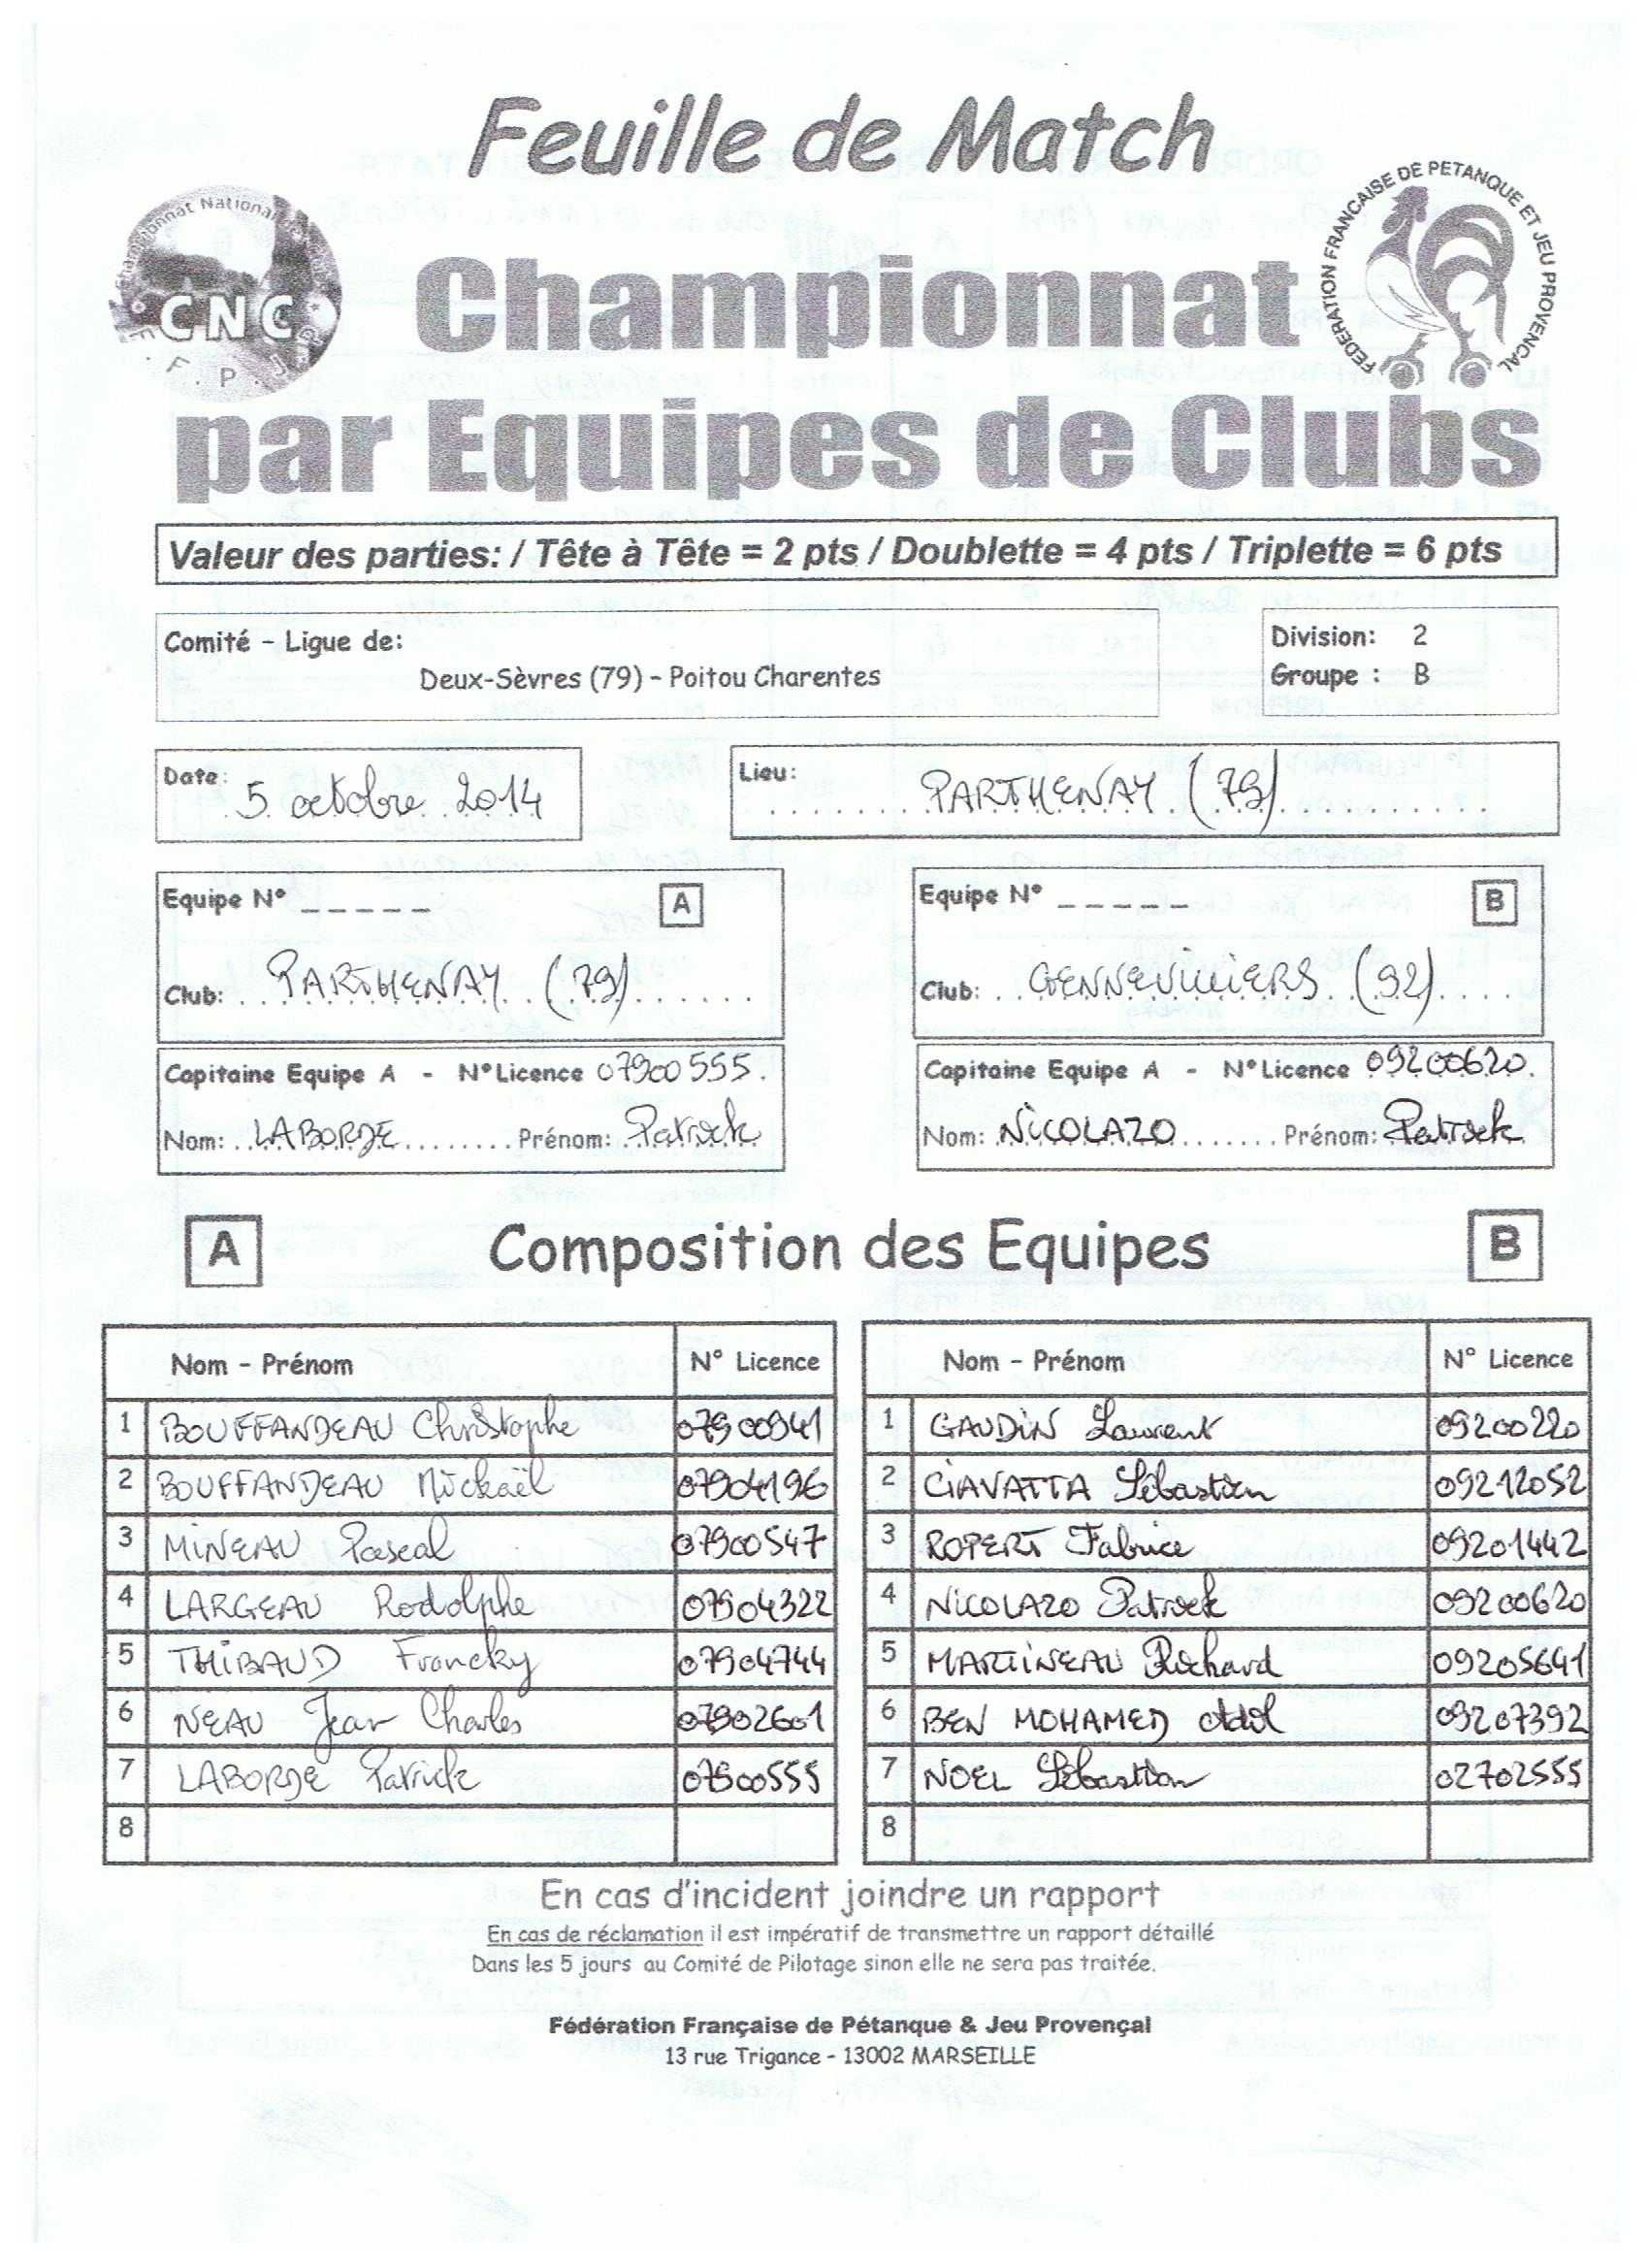 Feuille de Match
Championnat National des Clubs
CNC
F.F.P.J.P.
FEDERATION FRANCAISE DE PETANQUE ET JEU PROVENCAL
Championnat
par Equipes de Clubs
Valeur des parties: / Tête à Tête = 2 pts / Doublette = 4 pts / Triplette = 6 pts
Comité - Ligue de:
Deux-Sèvres (79) - Poitou Charentes
Division: 2
Groupe : B
Date: 5 octobre 2014
Lieu: PARTHENAY (79)
Equipe N° _ _ _ _ _ A
Club: PARTHENAY (79)
Capitaine Equipe A - N°Licence 07900555.
Nom: LABORDE Prénom: Patrick
Equipe N° _ _ _ _ _ B
Club: GENNEVILLIERS (92)
Capitaine Equipe A - N°Licence 09200620.
Nom: NICOLAZO Prénom: Patrick
A Composition des Equipes B
Nom - Prénom N° Licence
1 BOUFFANDEAU Christophe 07900941
2 BOUFFANDEAU Mickaël 07904196
3 MINEAU Pascal 07900547
4 LARGEAU Rodolphe 07904322
5 THIBAUD Francky 07904744
6 NEAU Jean Charles 07902601
7 LABORDE Patrick 07900555
8
Nom - Prénom N° Licence
1 GAUDIN Laurent 09200220
2 CIAVATTA Sébastien 09212052
3 ROPERT Fabrice 09201442
4 NICOLAZO Patrick 09200620
5 MARTINEAU Richard 09205641
6 BEN MOHAMED Adel 09207392
7 NOEL Sébastien 02702555
8
En cas d'incident joindre un rapport
En cas de réclamation il est impératif de transmettre un rapport détaillé
Dans les 5 jours au Comité de Pilotage sinon elle ne sera pas traitée.
Fédération Française de Pétanque & Jeu Provençal
13 rue Trigance - 13002 MARSEILLE